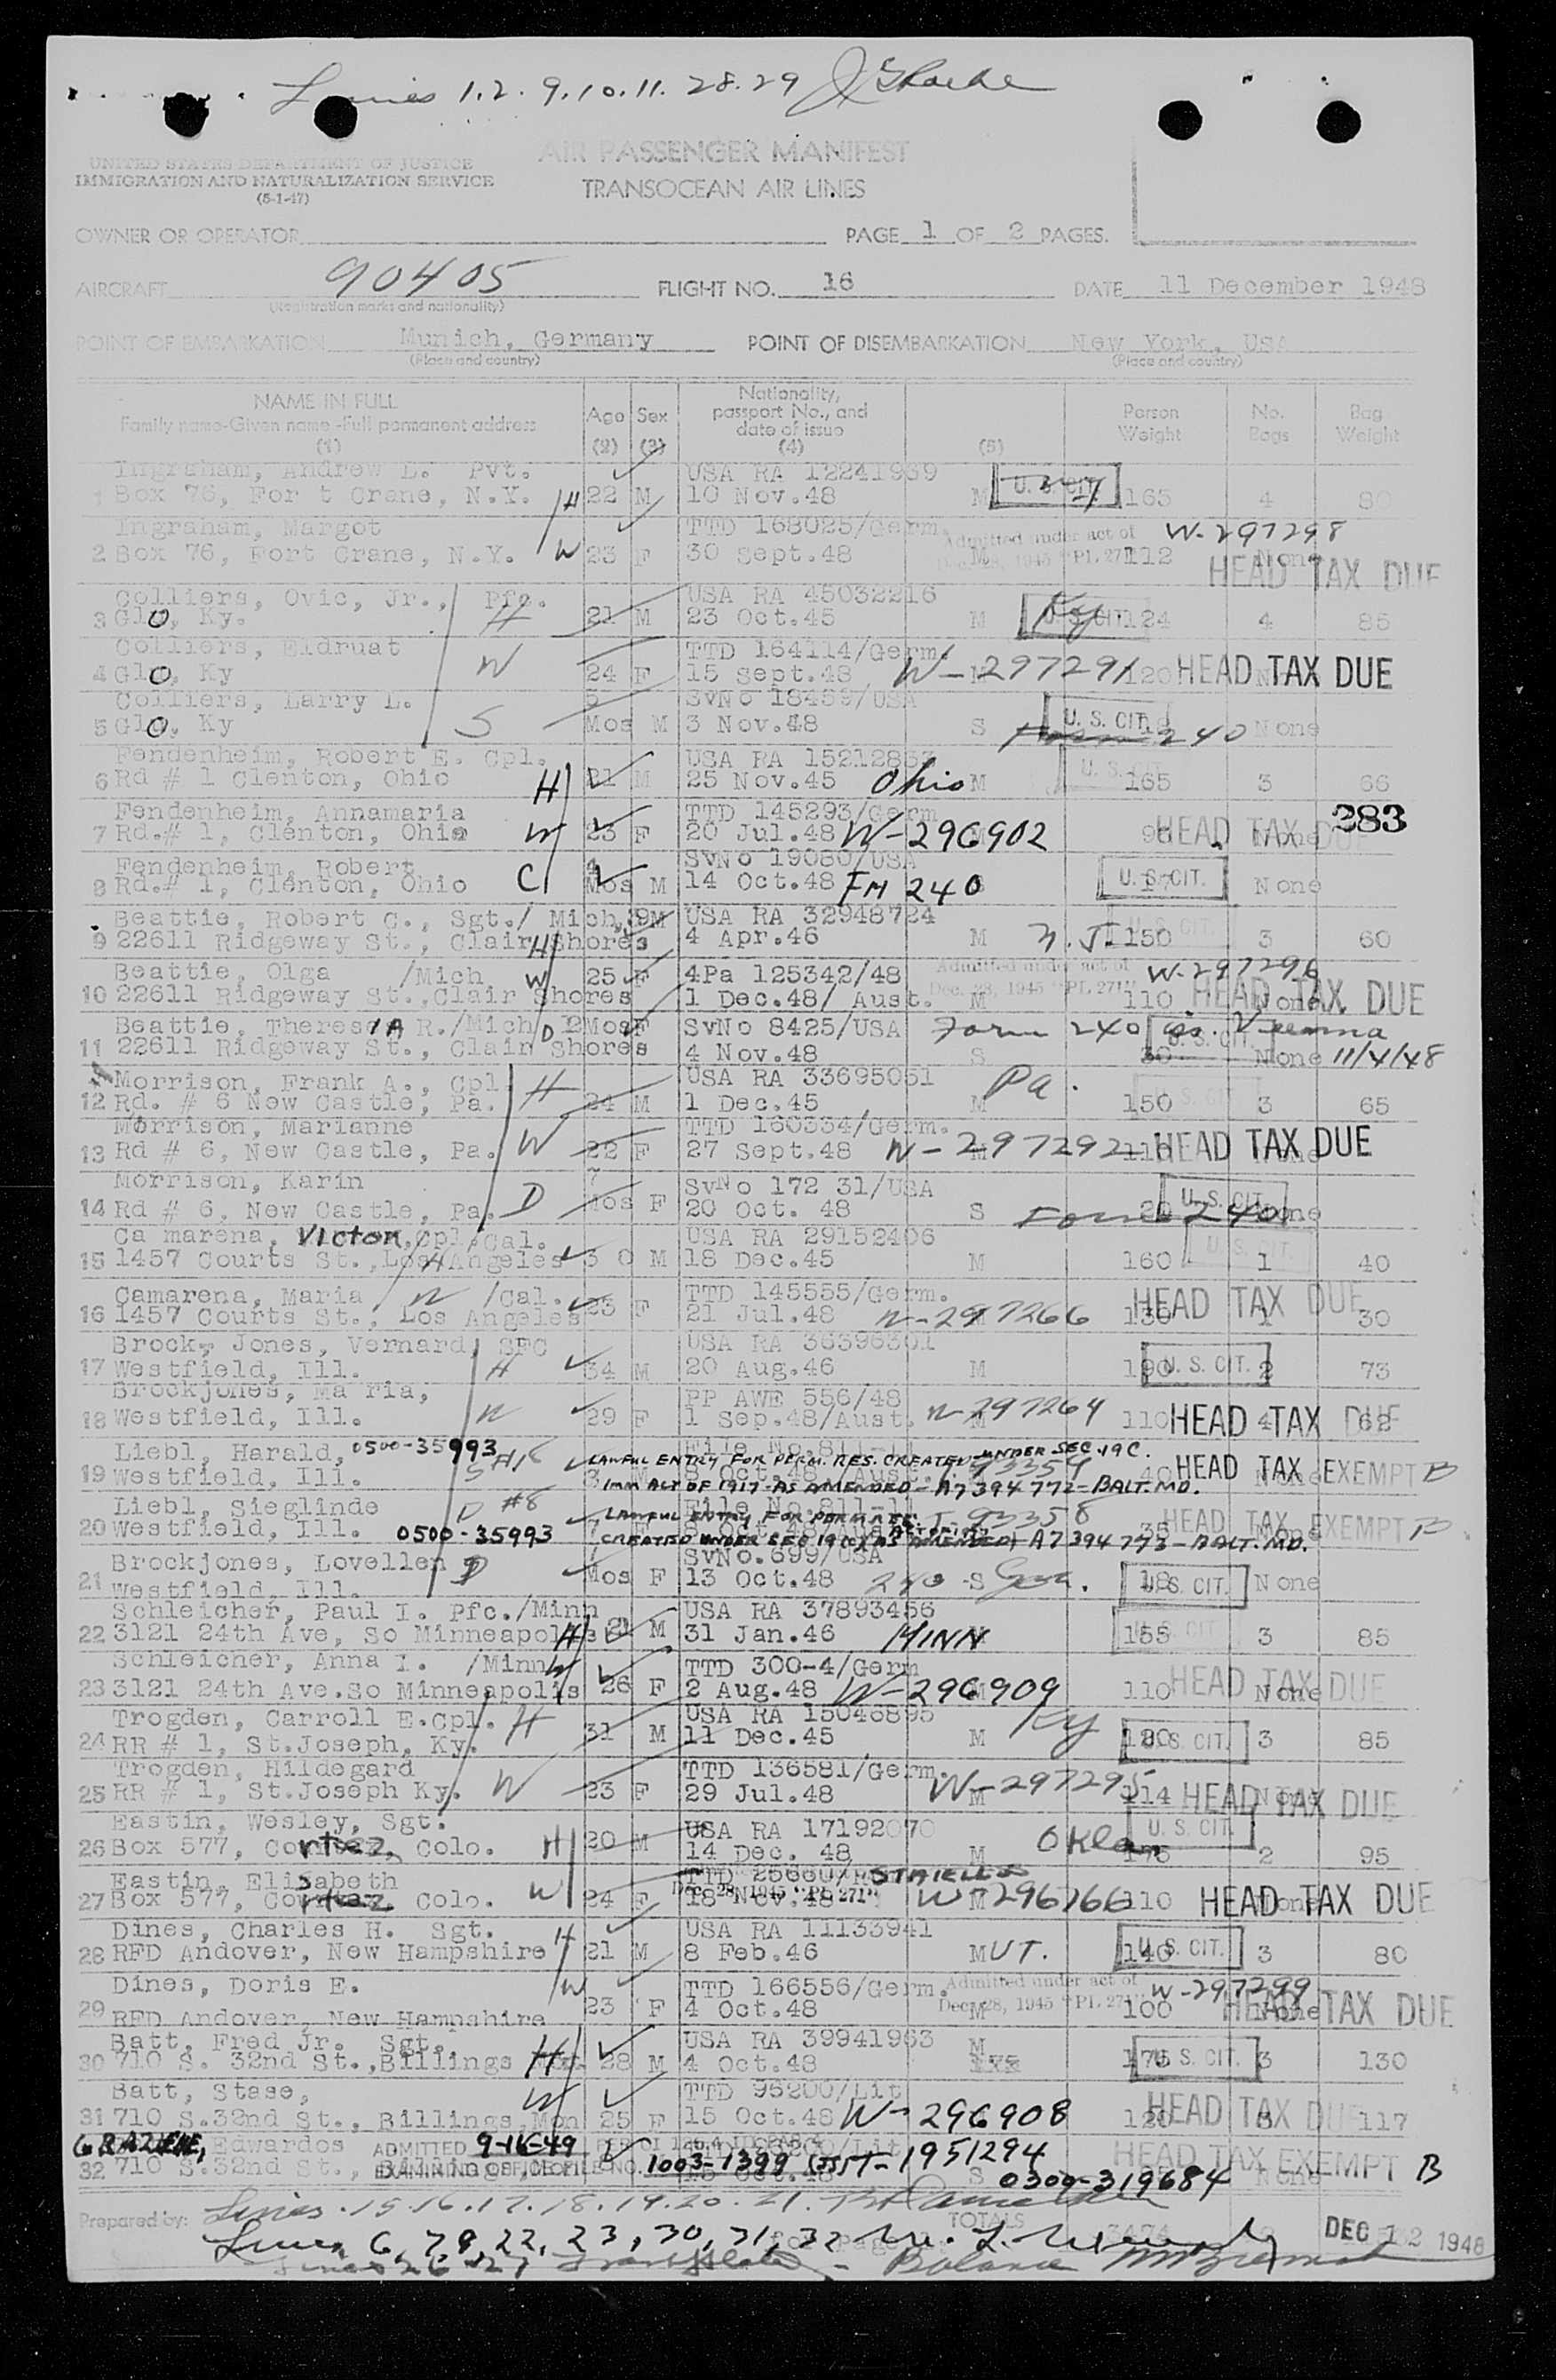 Lines 1.2.9.10.11.28.29
AIR PASSENGER MANIFEST
UNITED STATES DEPARTMENT OF JUSTICE
IMMIGRATION AND NATURALIZATION SERVICE
(5-1-47)
TRANSOCEAN AIR LINES
OWNER OR OPERATOR PAGE 1 OF 2 PAGES.
AIRCRAFT 90405 FLIGHT NO. 16 DATE 11 December 1948
(Registration marks and nationality)
POINT OF EMBARKATION Munich, Germany POINT OF DISEMBARKATION New York, USA
(Place and country) (Place and country)
NAME IN FULL Age Sex Nationality, Person No. Bag
Family name-Given name-Full permanent address passport No., and Weight Bags Weight
date of issue
(1) (2) (3) (4) (5)
Ingraham, Andrew L. Pvt. USA RA 12241939 U. S. CIT.
1 Box 76, For t Crane, N.Y. H 22 M 10 Nov.48 M 165 4 80
Ingraham, Margot TTD 168025/Germ. Admitted under act of W-297298
2 Box 76, Fort Crane, N.Y. W 23 F 30 Sept.48 M Dec. 28, 1945 "PL 271" 112 None HEAD TAX DUE
Colliers, Ovic, Jr., Pfc. USA RA 45032216
3 Glo, Ky. H 21 M 23 Oct.45 M Ky U. S. CIT. 124 4 85
Colliers, Eldruat TTD 164114/Germ
4 Glo, Ky W 24 F 15 Sept.48 W-297291 120 HEAD TAX DUE
Colliers, Larry L. 5 SvNo 18459/USA
5 Glo, Ky S Mos M 3 Nov.48 S U. S. CIT. Form 240 None
Fendenheim, Robert E. Cpl. USA RA 15212833 U. S. CIT.
6 Rd # 1 Clenton, Ohio H 21 M 25 Nov.45 Ohio M 165 3 66
Fendenheim, Annamaria TTD 145293/Germ 283
7 Rd.# 1, Clenton, Ohio W 23 F 20 Jul.48 W-296902 None HEAD TAX DUE
Fendenheim, Robert 4 SvNo 19080/USA
8 Rd.# 1, Clenton, Ohio C Mos M 14 Oct.48 FM 240 S U. S. CIT. None
Beattie, Robert C., Sgt./ Mich. M USA RA 32948724 U. S. CIT.
9 22611 Ridgeway St., Clair Shores H 4 Apr.46 M N.J. 150 3 60
Beattie, Olga /Mich W 25 F 4Pa 125342/48 Admitted under act of W-297296
10 22611 Ridgeway St.,Clair Shores 1 Dec.48/ Aust. M Dec. 28, 1945 "PL 271" 110 None HEAD TAX DUE
Beattie, Theresia R./Mich D 2Mos F SvNo 8425/USA Form 240 Vienna
11 22611 Ridgeway St., Clair Shores 4 Nov.48 S U. S. CIT. 30 None 11/4/48
Morrison, Frank A., Cpl USA RA 33695051 Pa.
12 Rd. # 6 New Castle, Pa. H 24 M 1 Dec.45 M 150 U. S. CIT. 3 65
Morrison, Marianne TTD 160334/Germ.
13 Rd # 6, New Castle, Pa. W 22 F 27 Sept.48 W-297292 110 HEAD TAX DUE
Morrison, Karin 7 SvNo 172 31/USA
14 Rd # 6, New Castle, Pa. D Mos F 20 Oct. 48 S Form 240 20 U. S. CIT. None
Ca marena, Victor, Cpl. Cal. USA RA 29152406 U. S. CIT.
15 1457 Courts St.,Los Angeles H 3 0 M 18 Dec.45 M 160 1 40
Camarena, Maria W /Cal. TTD 145555/Germ.
16 1457 Courts St., Los Angeles 23 F 21 Jul.48 W-297266 130 1 30 HEAD TAX DUE
Brock, Jones, Vernard, SFC USA RA 36396301
17 Westfield, Ill. H 34 M 20 Aug.46 M 190 U. S. CIT. 2 73
Brockjones, Ma ria, PP AWE 556/48
18 Westfield, Ill. W 29 F 1 Sep.48/Aust. W-297264 110 4 62 HEAD TAX DUE
Liebl, Harald, 0500-35993 LAWFUL ENTRY FOR PERM. RES. CREATED UNDER SEC. 19C
19 Westfield, Ill. 8 Oct.48 /Aust. HEAD TAX EXEMPT B
IMM ACT OF 1917-AS AMENDED-A7394772-BALT. MD.
Liebl, Sieglinde D #8 File No.811-11 LAWFUL ENTRY FOR PERM RES.
20 Westfield, Ill. 0500-35993 7 HEAD TAX EXEMPT B
CREATED UNDER SEC 19(c) AS AMENDED, A7394773-BALT. MD.
Brockjones, Lovellen D SvNo.699/USA
21 Westfield, Ill. Mos F 13 Oct.48 240 S 18 U. S. CIT. None
Schleicher, Paul I. Pfc./Minn USA RA 37893456
22 3121 24th Ave, So Minneapolis H 21 M 31 Jan.46 MINN 155 U. S. CIT. 3 85
Schleicher, Anna I. /Minn W TTD 300-4/Germ
23 3121 24th Ave.So Minneapolis 26 F 2 Aug.48 W-296909 110 None HEAD TAX DUE
Trogden, Carroll E.Cpl. H USA RA 15046895 Ky
24 RR # 1, St.Joseph, Ky. 31 M 11 Dec.45 M 180 U. S. CIT. 3 85
Trogden, Hildegard TTD 136581/Germ.
25 RR # 1, St.Joseph Ky. W 23 F 29 Jul.48 W-297295 114 None HEAD TAX DUE
Eastin, Wesley, Sgt. USA RA 17192070 U. S. CIT.
26 Box 577, Cortez, Colo. H 20 M 14 Dec. 48 M Okla. 175 2 95
Eastin, Elisabeth TTD 25660
27 Box 577, Cortez, Colo. W 24 F 18 Nov.48 Dec. 28, 1945 "PL 271" W-296766 110 None HEAD TAX DUE
Dines, Charles H. Sgt. H USA RA 11133941
28 RFD Andover, New Hampshire 21 M 8 Feb.46 M UT. 140 U. S. CIT. 3 80
Dines, Doris E. W TTD 166556/Germ. Admitted under act of W-297299
29 RFD Andover, New Hampshire 23 F 4 Oct.48 M Dec. 28, 1945 "PL 271" 100 None HEAD TAX DUE
Batt, Fred Jr. Sgt. H USA RA 39941963 M
30 710 S. 32nd St.,Billings 28 M 4 Oct.48 175 U. S. CIT. 3 130
Batt, Stase, W TTD 96200/Lit
31 710 S.32nd St., Billings,Mon 25 F 15 Oct.48 W-296908 120 3 117 HEAD TAX DUE
Edwardos ADMITTED 9-16-49 T-1951294 HEAD TAX EXEMPT B
32 710 S.32nd St., Billings EXAMINING OFFICE FILE NO. 1003-1399 S 0300-319684 None
Prepared by: Lines.15.16.17.18.19.20.21. TOTALS 3474
Lines 6, 7, 8, 22, 23, 30, 31, 32 DEC 12 1948
Lines 26-27 Balance